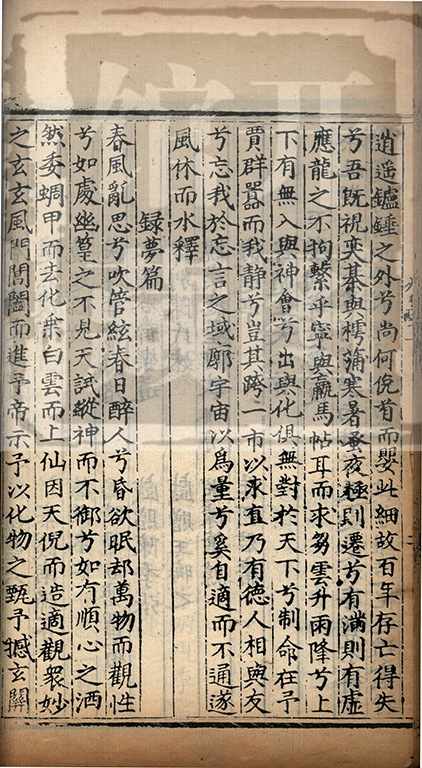 逍遥鑪錘之外兮尚何俛首而嬰此細故百年存亡得失
兮吾既視奕棊與樗蒱寒暑蚤夜極則遷兮有滿則有虛
應龍之不拘繫乎寧與羸馬帖耳而求芻雲升雨降兮上
下有無入與神會兮出與化俱無對於天下兮制命在予
賈群囂而我静兮豈其跨一市以求直乃有德人相與友
兮忘我於忘言之域廓宇宙以爲量兮奚自適而不通遂
風休而水釋
録夢篇
春風亂思兮吹管絃春日醉人兮昏欲眠却萬物而觀性
兮如處幽篁之不見天試縱神而不御兮如方順心之洒
然委蜩甲而去化乗白雲而上仙因天倪而造適觀衆妙
之玄玄風門闒闔而進予帝示予以化物之甄予撼玄關